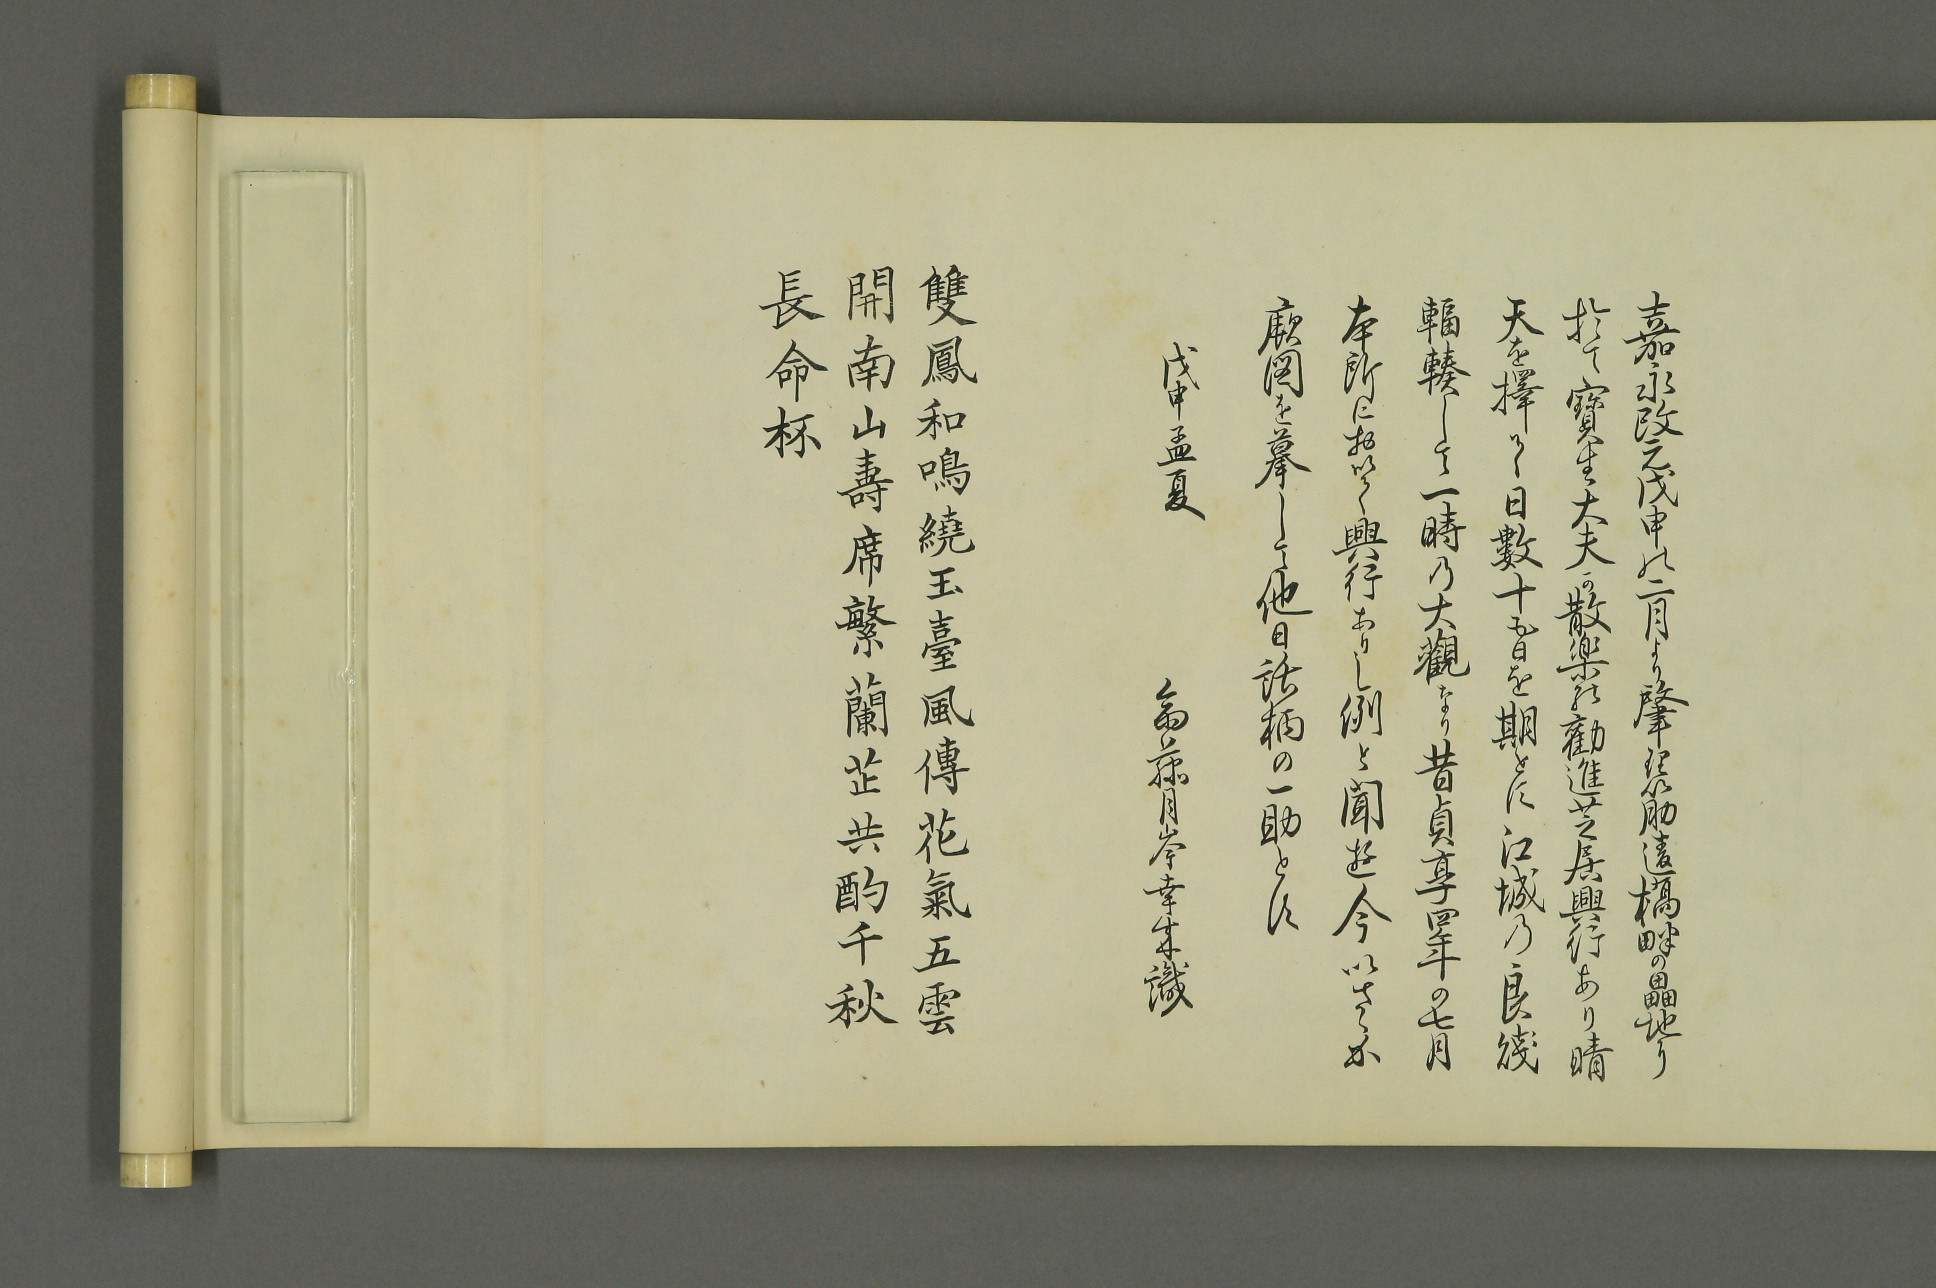 嘉永改元戊申の二月より肇理筋違橋畔の畾地に
於て寶生大夫の散樂の勧進芝居興行あり晴
天を擇みて日數十五日を期とす江城の良賤
輻輳して一時の大觀なり昔貞享四年の七月
本所に於いて興行ありし例と聞ど今いさゝか
厥図を摹して他日話柄の一助とす
戊申孟夏
斎藤月岑幸成識
雙鳳和鳴繞玉臺風傳花氣五雲
開南山壽席繁蘭芷共酌千秋
長命杯